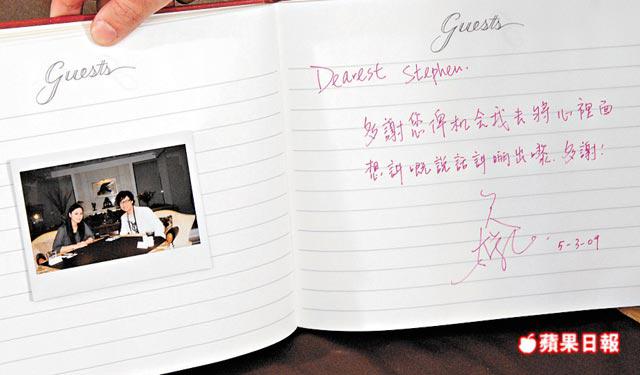 Guests
Guests
Dearest Stephen.
多謝您俾机会我去將心裡面
想讲嘅說話讲晒出嚟. 多謝!
5-3-09
蘋果日報